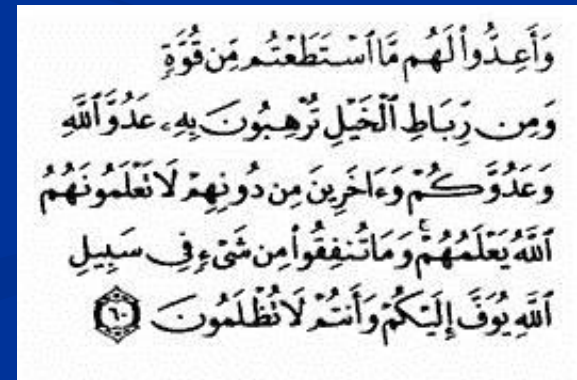 وَأَعِدُّواْ لَهُم مَّا ٱسْتَطَعْتُم مِّن قُوَّةٍ
وَمِن رِّبَاطِ ٱلْخَيْلِ تُرْهِبُونَ بِهِۦ عَدُوَّ ٱللَّهِ
وَعَدُوَّكُمْ وَءَاخَرِينَ مِن دُونِهِمْ لَا تَعْلَمُونَهُمُ
ٱللَّهُ يَعْلَمُهُمْ ۚ وَمَا تُنفِقُواْ مِن شَىْءٍ فِى سَبِيلِ
ٱللَّهِ يُوَفَّ إِلَيْكُمْ وَأَنتُمْ لَا تُظْلَمُونَ ٦٠